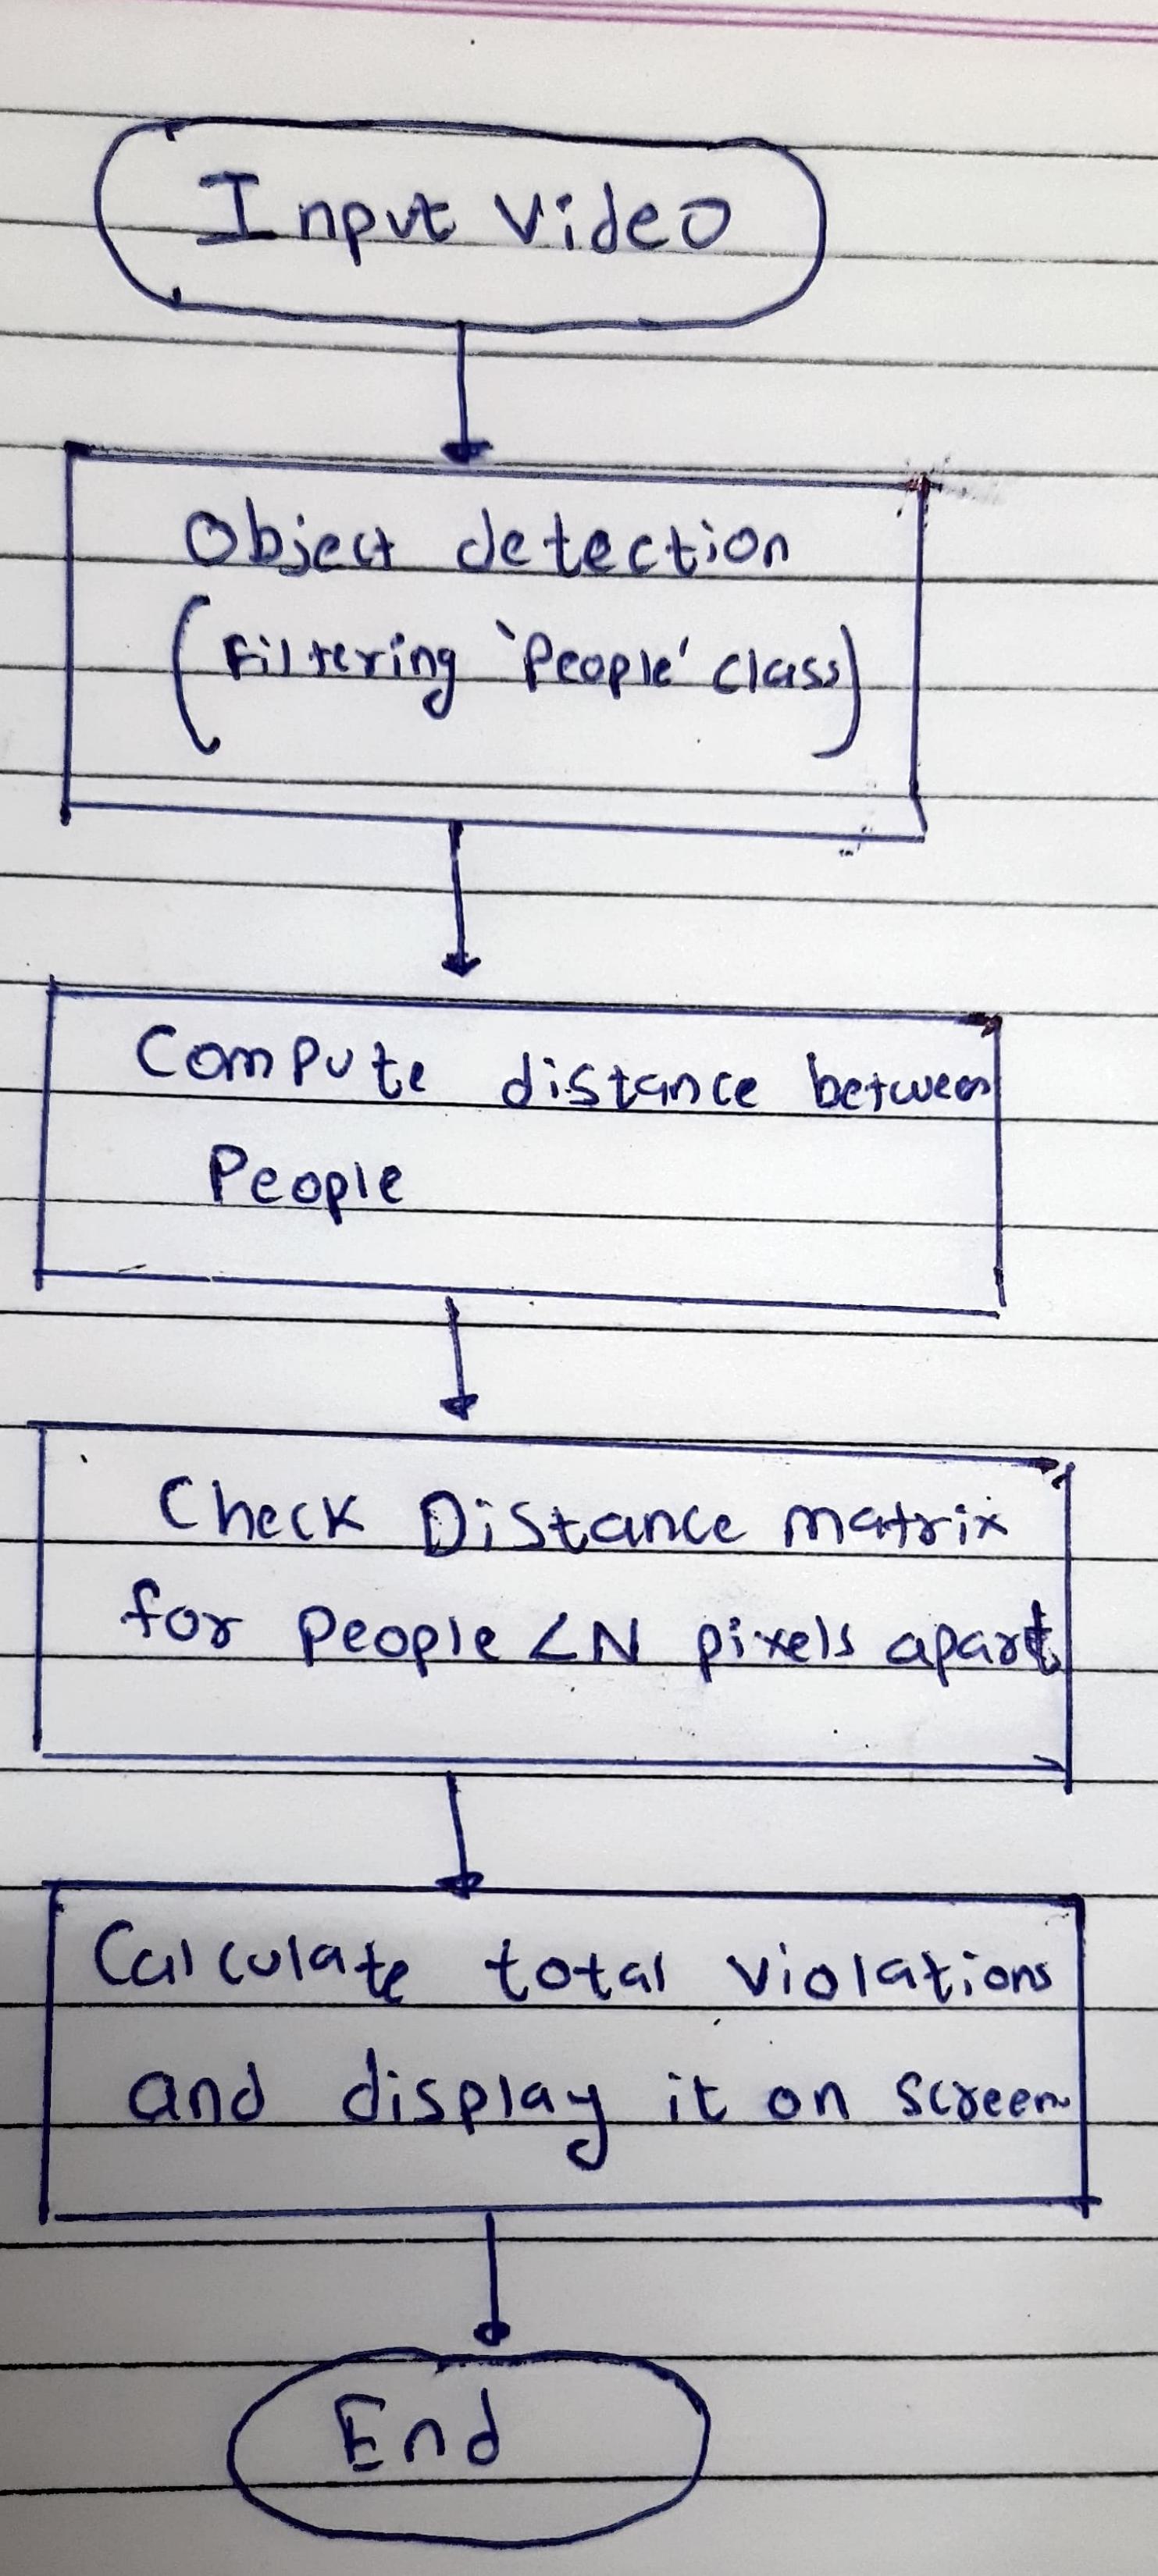 Input Video
Object detection
(Filtering 'People' class)
Compute distance between
People
Check Distance matrix
for people <N pixels apart
Calculate total violations
and display it on screen
End